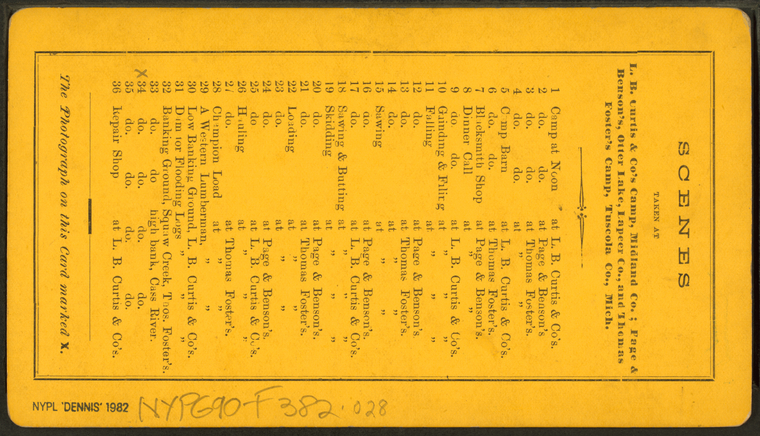 SCENES
TAKEN AT
L. B. Curtis & Co's Camp, Midland Co.; Page &
Benson's, Otter Lake, Lapeer Co., and Thomas
Foster's Camp, Tuscola Co., Mich.
1 Camp at Noon at L. B. Curtis & Co's.
2 do. do. at Page & Benson's
3 do. do. at Thomas Foster's.
4 do. do. at " "
5 Camp Barn at L. B. Curtis & Co's.
6 do. do. at Thomas Foster's.
7 Blacksmith Shop at Page & Benson's.
8 Dinner Call at " "
9 do. do. at L. B. Curtis & Co's.
10 Grinding & Filing at " "
11 Falling at " "
12 do. at Page & Benson's.
13 do. at Thomas Foster's.
14 do. at " "
15 Sawing at " "
16 do. at Page & Benson's.
17 do. at L. B. Curtis & Co's.
18 Sawing & Butting at " "
19 Skidding at " "
20 do. at Page & Benson's.
21 do. at Thomas Foster's.
22 Loading at " "
23 do. at " "
24 do. at Page & Benson's.
25 do at L. B. Curtis & Co's.
26 Hauling at " "
27 do. at Thomas Foster's.
28 Champion Load at " "
29 A Western Lumberman, " "
30 Low Banking Ground, L. B. Curtis & Co's.
31 Dam for Flooding Logs " "
32 Banking Ground, Squaw Creek, Thos. Foster's.
33 do. do high bank, Cass River.
X 34 do. do. do. do.
35 do. do. do. do.
36 Repair Shop at L. B. Curtis & Co's.
The Photograph on this Card marked X.
NYPL 'DENNIS' 1982 NYPG90-F382.028